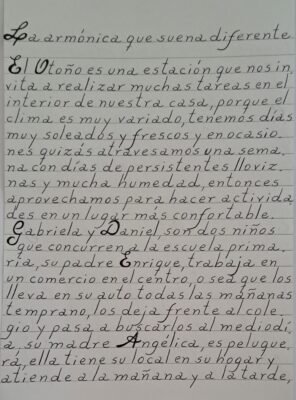 La armónica que suena diferente
El Otoño es una estación que nos in
vita a realizar muchas tareas en el
interior de nuestra casa, porque el
clima es muy variado, tenemos días
muy soleados y frescos y en ocasio
nes quizás atravesamos una sema
na con días de persistentes lloviz
nas y mucha humedad, entonces
aprovechamos para hacer activida
des en un lugar más confortable.
Gabriela y Daniel, son dos niños
que concurren a la escuela prima
ria, su padre Enrique, trabaja en
un comercio en el centro, o sea que los
lleva en su auto todas las mañanas
temprano, los deja frente al cole
gio y pasa a buscarlos al mediodí
a, su madre Angélica, es peluque
ra, ella tiene su local en su hogar y
atiende a la mañana y a la tarde,